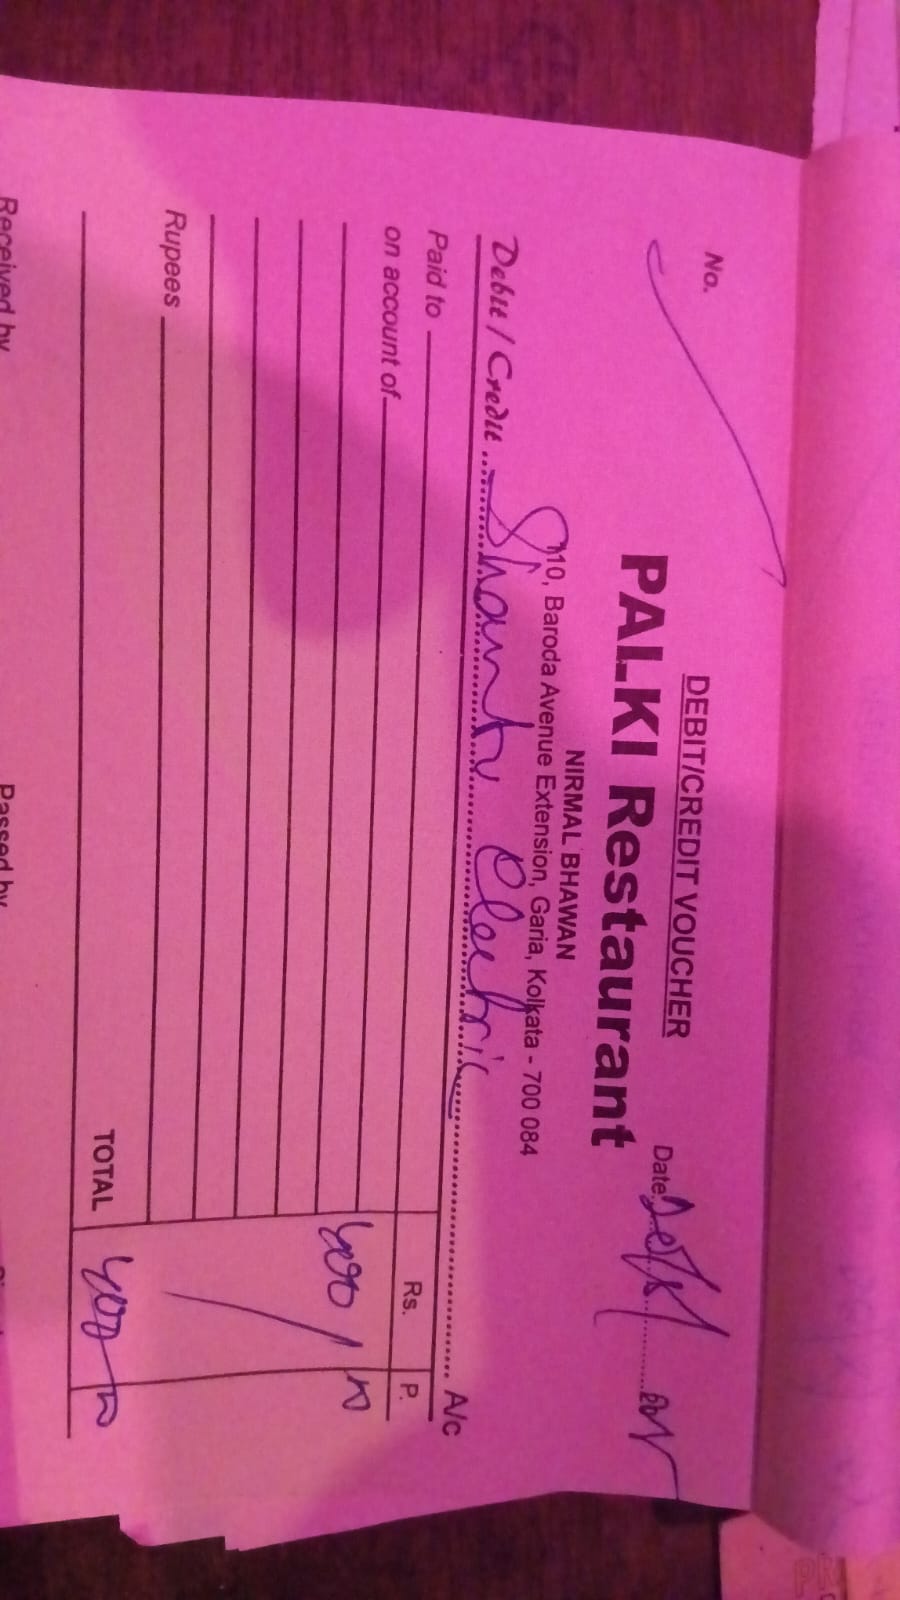 No.
DEBIT/CREDIT VOUCHER
PALKI Restaurant
Date
NIRMAL BHAWAN
110, Baroda Avenue Extension, Garia, Kolkata - 700 084
Debit / Credit Shantu Electric A/c
Paid to
Rs. P.
on account of
Rupees
TOTAL
Received by Passed by